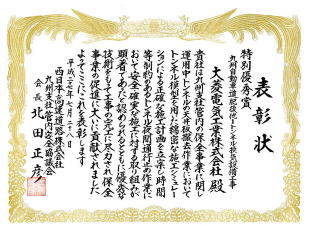 表彰状
特別優秀賞
九州自動車道肥後他トンネル換気設備工事
大菱電気工業株式会社 殿
貴社は九州支社管内の保全事業に関し
運用中トンネルの天井板撤去作業において
トンネル模型を用いた綿密な施工シミュレー
ションによる正確な施工計画を立案し時間
等制約のあるトンネル夜間通行止め作業に
おいて安全確実な施工に対する取り組みが
顕著であったと認められるとともに優秀な
技術をもって工事の完成に尽力され保全
事業の促進に大いに貢献されました
よってここにこれを表彰します
平成二十七年七月二十八日
西日本高速道路株式会社
九州支社管内安全協議会
会長 北田正彦